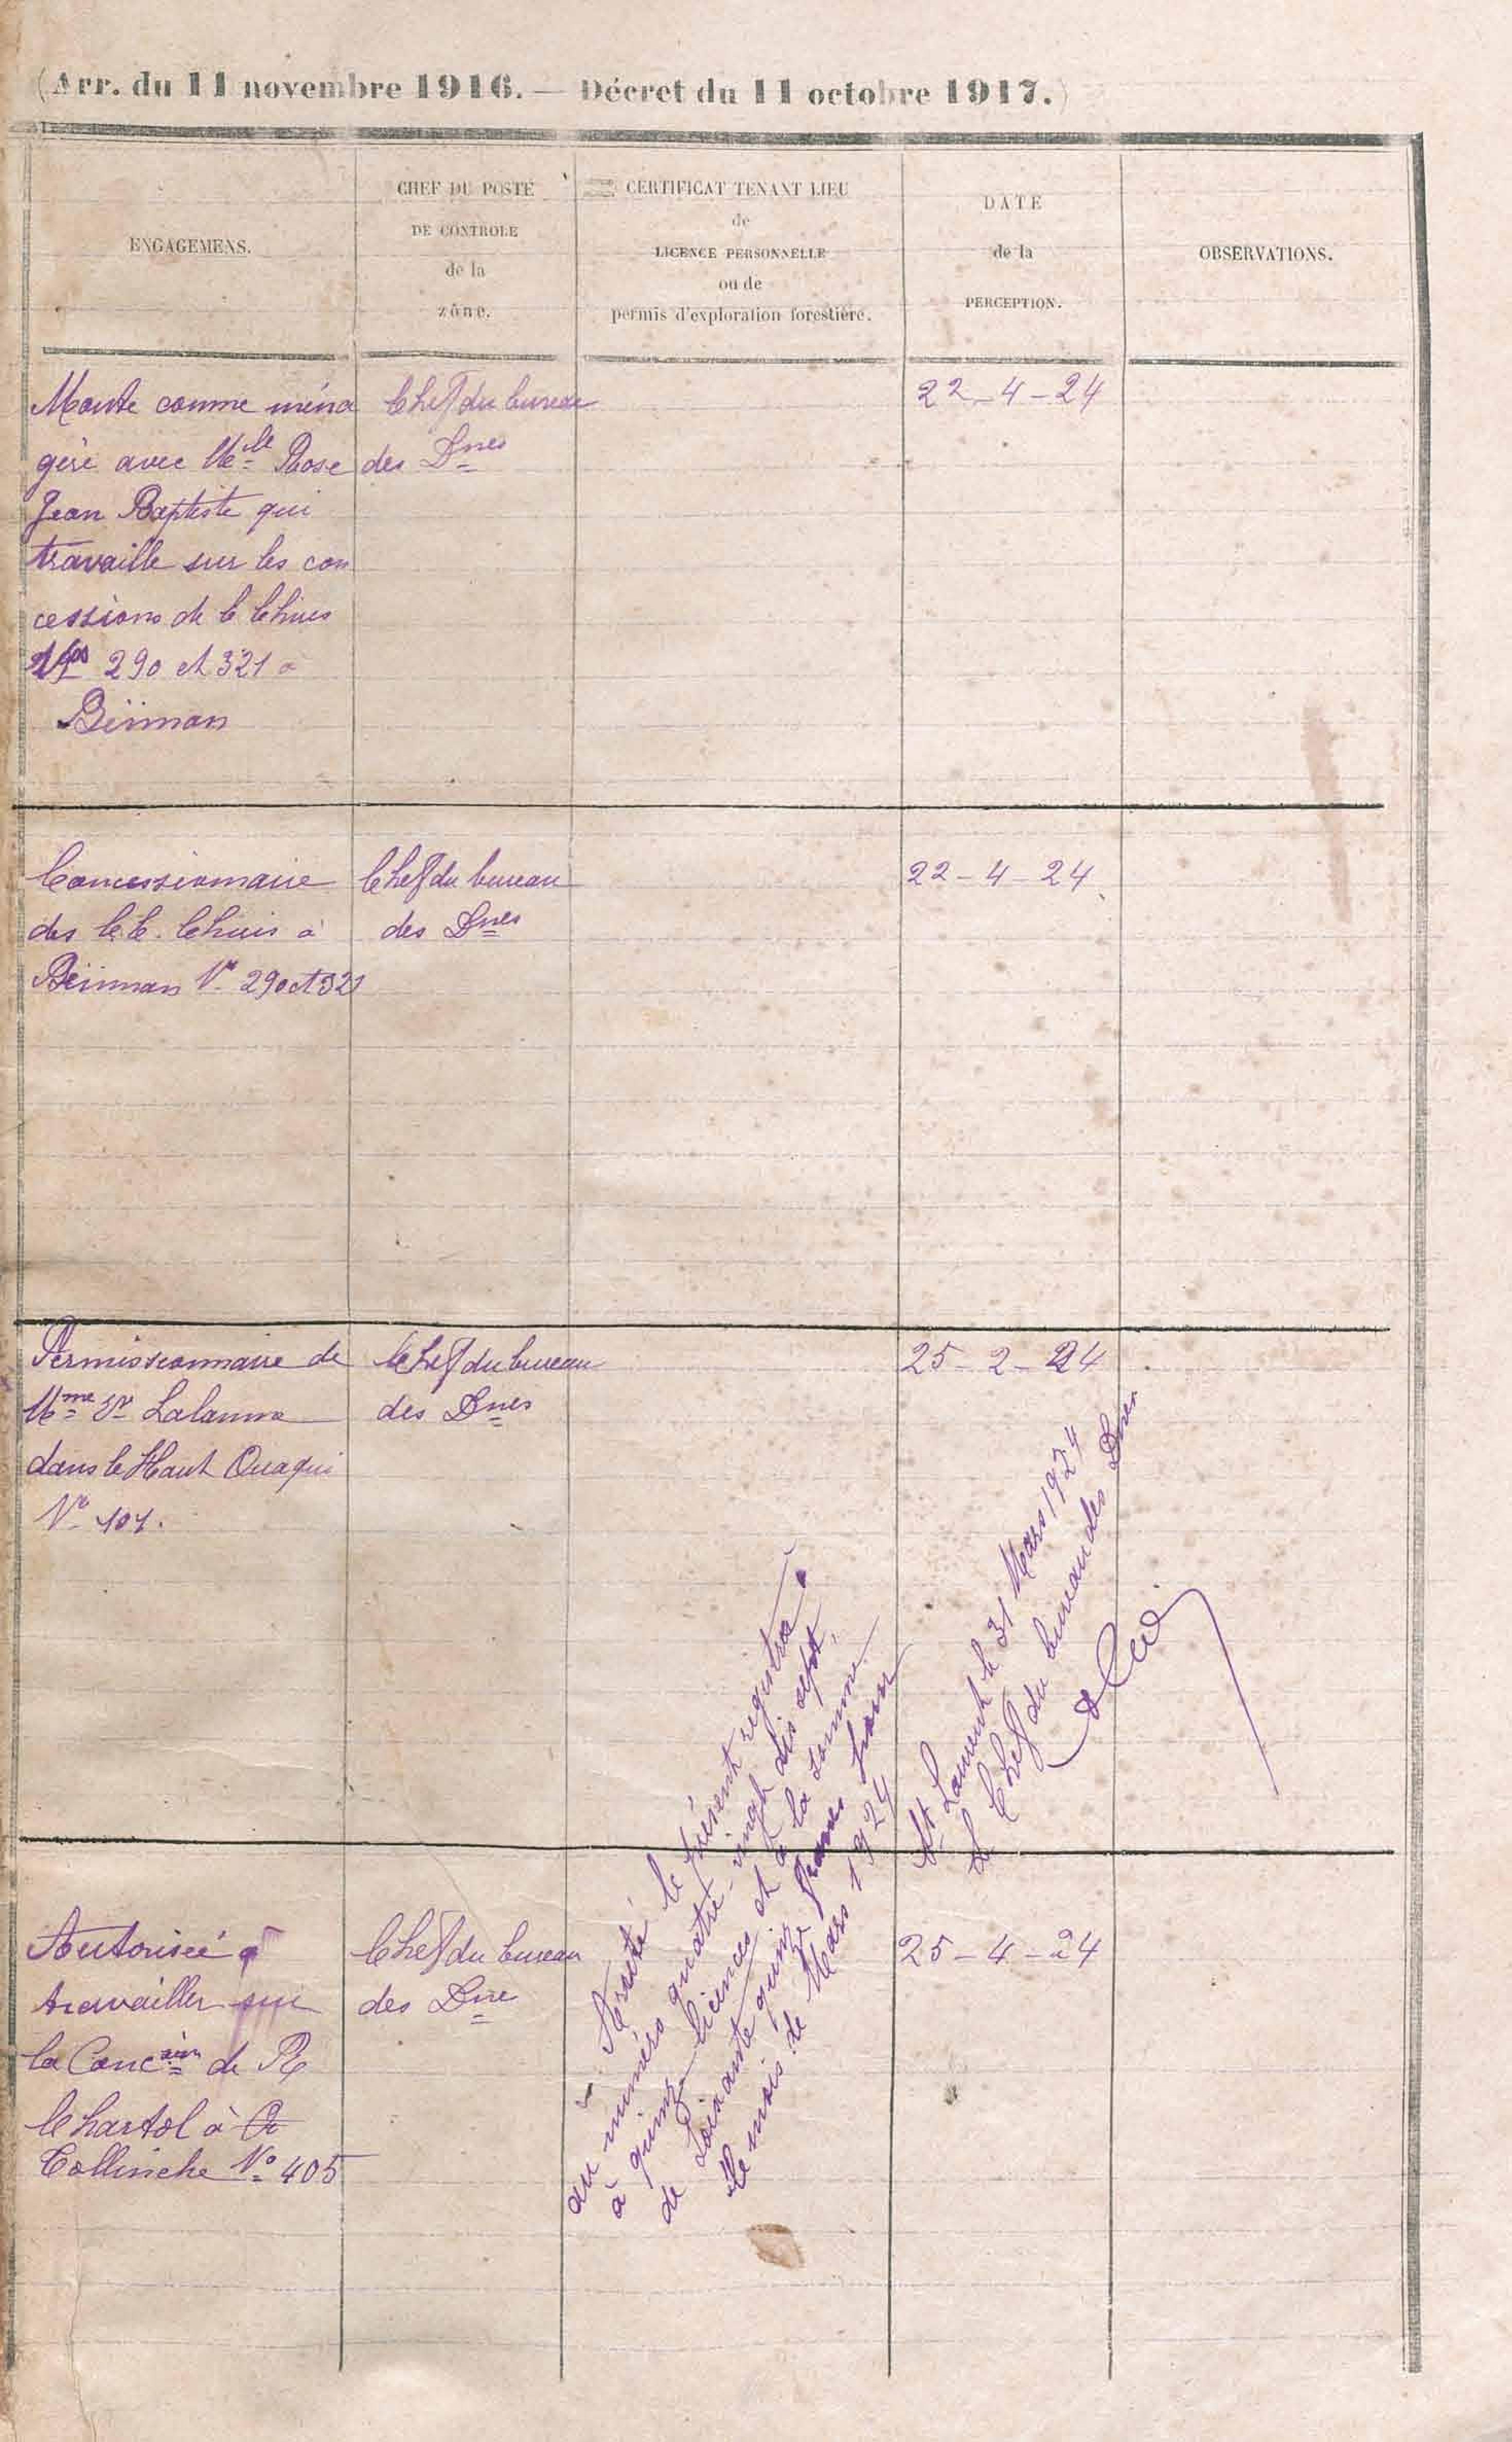 (Arr. du 11 novembre 1916. — Décret du 11 octobre 1917.)
ENGAGEMENS.
CHEF DU POSTE
DE CONTROLE
de la
zône.
CERTIFICAT TENANT LIEU
de
LICENCE PERSONNELLE
ou de
permis d'exploration forestière.
DATE
de la
PERCEPTION.
OBSERVATIONS.
Monte comme ména
gère avec Melle Rose
Jean Baptiste qui
travaille sur les con
cessions de
Nos 290 et 321 à
Beiman
Chef du bureau
des Dnes
22-4-24
Concessionnaire
des à
Beiman No 290 et 321
Chef du bureau
des Dnes
22-4-24
Permissionnaire de
Mme Ve Lalanne
dans le Haut Ouaqui
No 101.
Chef du bureau
des Dnes
25-2-24
Arrêté le présent registre
au numéro quatre-vingt dix sept,
à quinze licences et à la somme
de Soixante quinze francs pour
le mois de Mars 1924
St Laurent le 31 Mars 1924
Le Chef du bureau des Dnes
Autorisée à
travailler sur
la Concsion de R
Chartol à Cr
Collinche No 405
Chef du bureau
des Dne
25-4-24